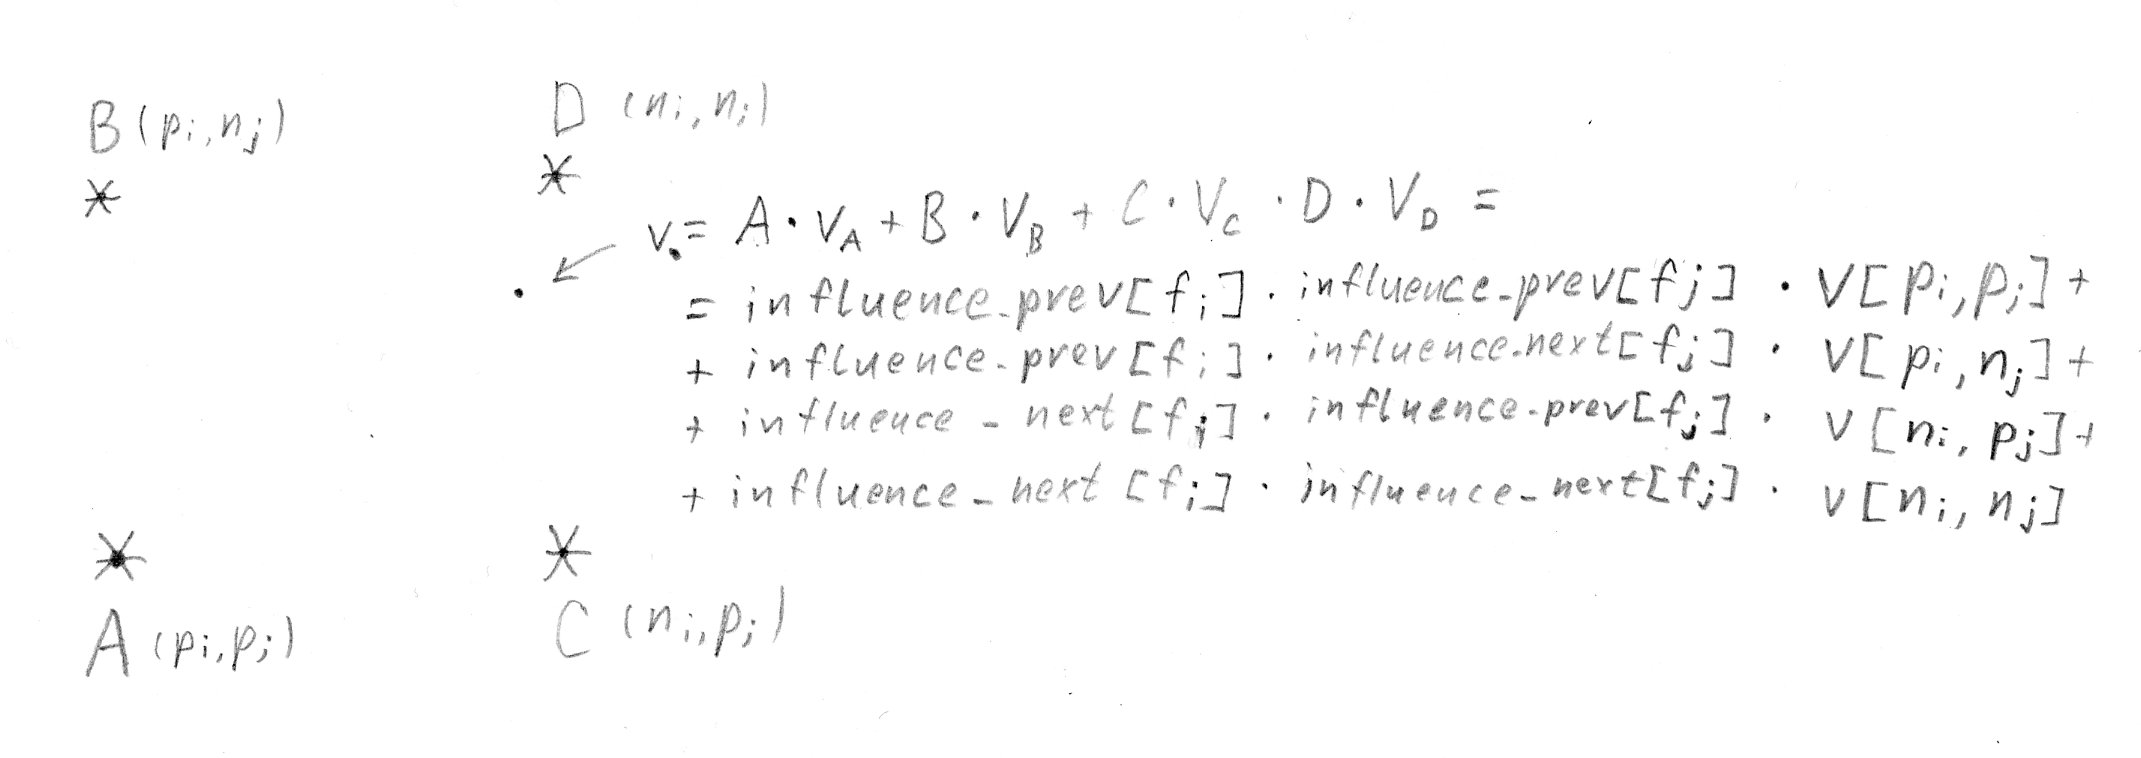 B (pi, nj)
D (ni, nj)
* *
v. = A · vA + B · VB + C · Vc · D · VD =
= influence_prev[fi] · influence_prev[fj] · V[pi, pj] +
+ influence_prev[fi] · influence_next[fj] · V[pi, nj] +
+ influence_next[fi] · influence_prev[fj] · V[ni, pj] +
+ influence_next[fi] · influence_next[fj] · V[ni, nj]
* *
A (pi, pj)
C (ni, pj)